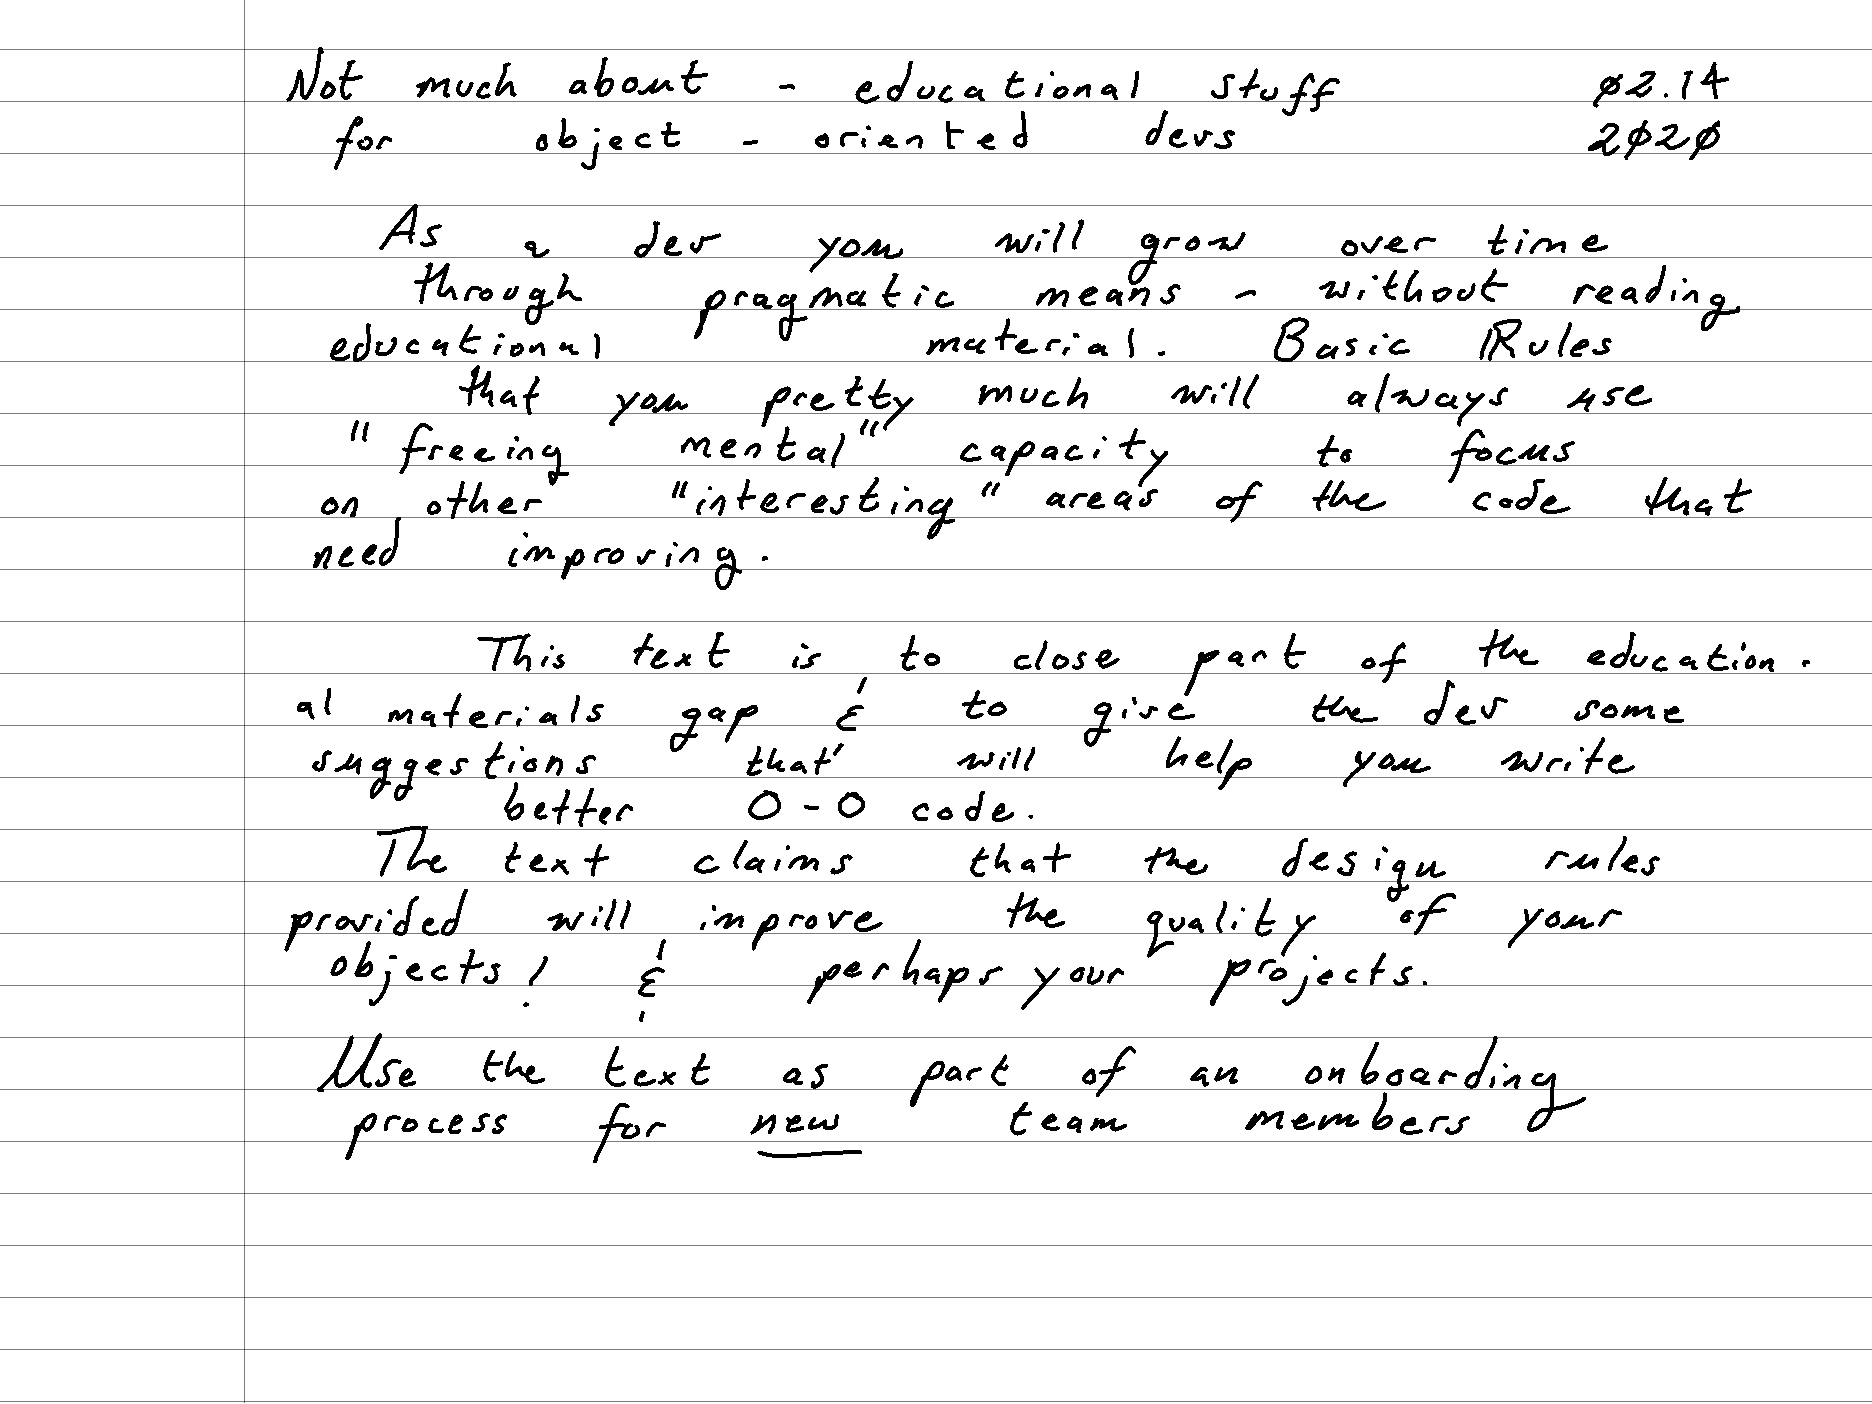 Not much about - educational stuff 02.14
for object - oriented devs 2020
As a dev you will grow over time
through pragmatic means - without reading
educational material. Basic Rules
that you pretty much will always use
"freeing mental" capacity to focus
on other "interesting" areas of the code that
need improving.
This text is to close part of the education.
al materials gap & to give the dev some
suggestions that will help you write
better O-O code.
The text claims that the design rules
provided will improve the quality of your
objects! & perhaps your projects.
Use the text as part of an onboarding
process for new team members